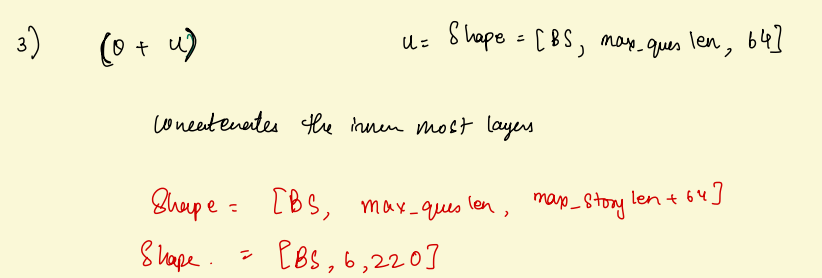 3) (O + u) u = Shape = [BS, max_ques len, 64]
Concatenates the inner most layers
Shape = [BS, max_ques len, max_story len + 64]
Shape. = [BS, 6, 220]